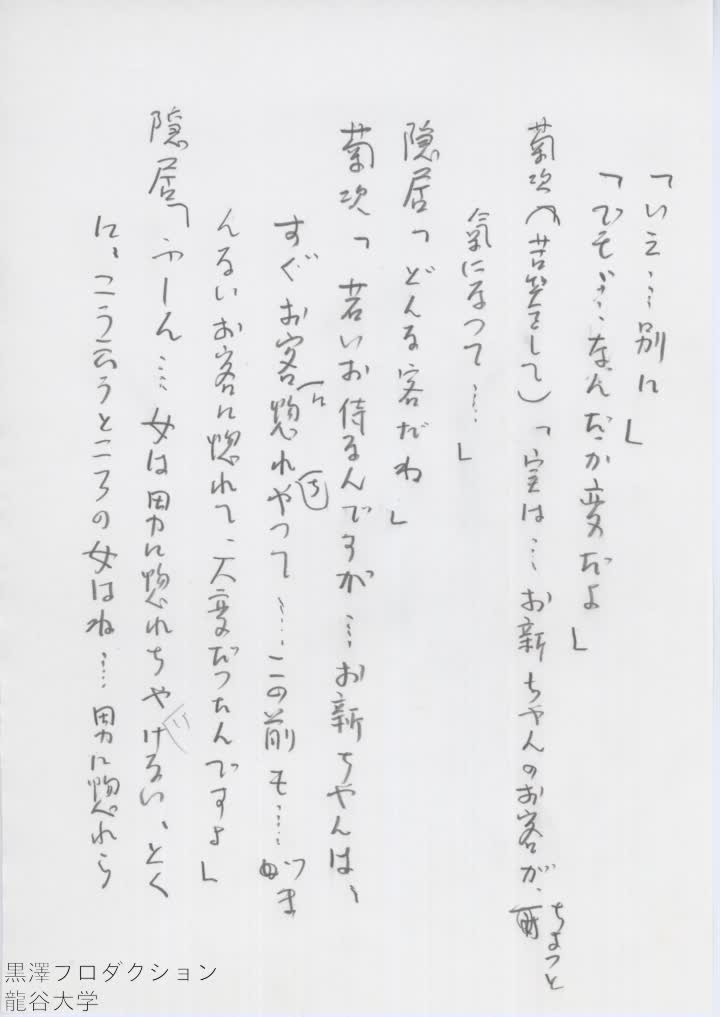 「いえ……別に」
「ひそ……なんだか変だよ」
菊次(苦笑をして)「実は……お新ちゃんのお客が、ちょっと
氣になつて……」
隠居「どんな客だね」
菊次「若いお侍なんですが……お新ちやんは、
すぐお客に惚れちやつて……この前も……つま
んないお客に惚れて、大変だつたんですよ」
隠居「ふーん……女は男に惚れちやいけない、とく
に、こう云うところの女はね……男に惚れら
黒澤プロダクション
龍谷大学